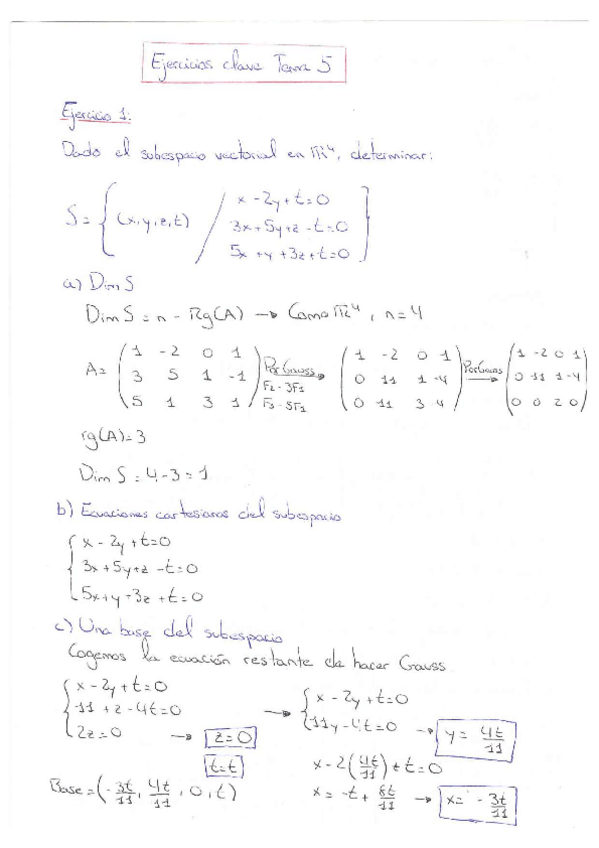 Ejercicios clave Tema 5
Ejercicio 1:
Dado el subespacio vectorial en ℝ⁴, determinar:
S = { (x,y,z,t) / x - 2y + t = 0
3x + 5y + z - t = 0
5x + y + 3z + t = 0 }
a) Dim S
Dim S = n - Rg(A) → Como ℝ⁴, n = 4
A = ( 1 -2 0 1 ) Por Gauss → ( 1 -2 0 1 ) Por Gauss → ( 1 -2 0 1 )
( 3 5 1 -1 ) F2 - 3F1 ( 0 11 1 -4 ) ( 0 11 1 -4 )
( 5 1 3 1 ) F3 - 5F1 ( 0 11 3 4 ) ( 0 0 2 0 )
rg(A) = 3
Dim S = 4 - 3 = 1
b) Ecuaciones cartesianas del subespacio
x - 2y + t = 0
3x + 5y + z - t = 0
5x + y + 3z + t = 0
c) Una base del subespacio
Cogemos la ecuación restante de hacer Gauss
x - 2y + t = 0
11 + z - 4t = 0
2z = 0 → z = 0
t = t
→ x - 2y + t = 0
11y - 4t = 0 → y = 4t/11
x - 2(4t/11) + t = 0
x = -t + 8t/11 → x = -3t/11
Base = (-3t/11, 4t/11, 0, t)